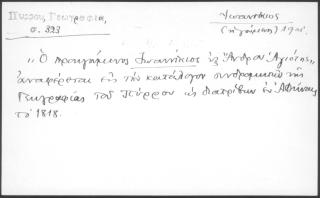 Πύρρου Γεωγραφία,
σ. 393
Ἰωαννίκιος
(ἡγούμενος)
„Ὁ προηγούμενος Ἰωαννίκιος ἐξ Ἄνδρου Ἁγιότης,
ἀναφέρεται εἰς τὸν κατάλογον συνδρομητῶν τῆς
Γεωγραφίας τοῦ Πύρρου ὡς διατρίβων ἐν Ἀθήναις
τὸ 1818.